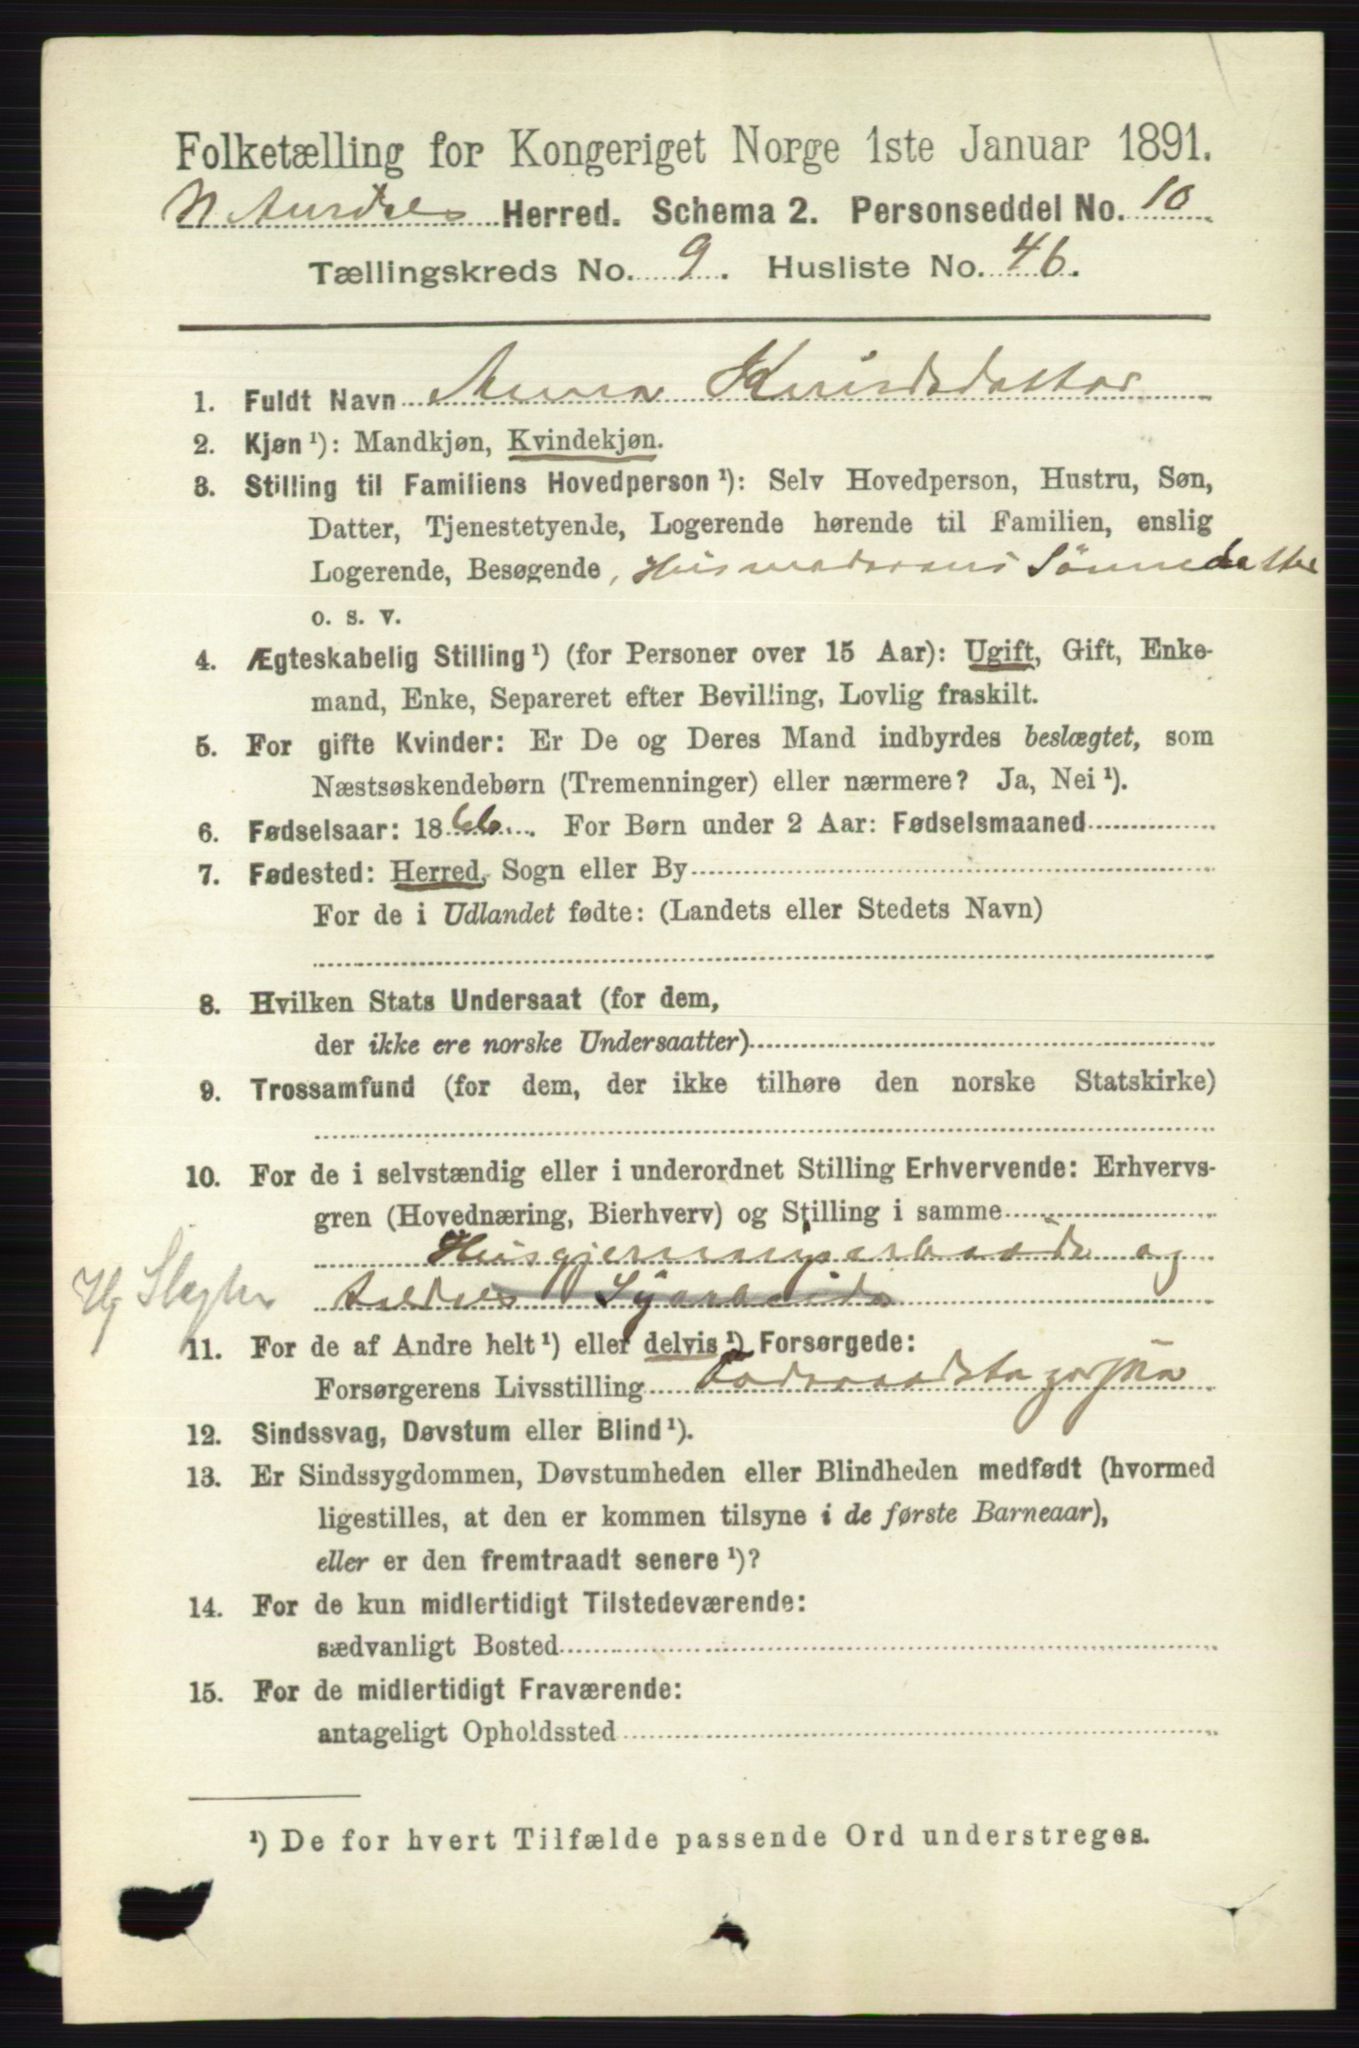 Folketælling for Kongeriget Norge 1ste Januar 1891.
N. Aurdals Herred. Schema 2. Personseddel No. 10
Tællingskreds No. 9. Husliste No. 46.
1. Fuldt Navn Anna
2. Kjøn ¹): Mandkjøn, Kvindekjøn.
3. Stilling til Familiens Hovedperson ¹): Selv Hovedperson, Hustru, Søn,
Datter, Tjenestetyende, Logerende hørende til Familien, enslig
Logerende, Besøgende, Husmoderens Sønnedatter
o. s. v.
4. Ægteskabelig Stilling ¹) (for Personer over 15 Aar): Ugift, Gift, Enke-
mand, Enke, Separeret efter Bevilling, Lovlig fraskilt.
5. For gifte Kvinder: Er De og Deres Mand indbyrdes beslægtet, som
Næstsøskendebørn (Tremenninger) eller nærmere? Ja, Nei ¹).
6. Fødselsaar: 1866. For Børn under 2 Aar: Fødselsmaaned
7. Fødested: Herred, Sogn eller By
For de i Udlandet fødte: (Landets eller Stedets Navn)
8. Hvilken Stats Undersaat (for dem,
der ikke ere norske Undersaatter)
9. Trossamfund (for dem, der ikke tilhøre den norske Statskirke)
10. For de i selvstændig eller i underordnet Stilling Erhvervende: Erhvervs-
gren (Hovednæring, Bierhverv) og Stilling i samme
Husgjerningsarbeide og
Hj Slegtn deels Syarbeide
11. For de af Andre helt ¹) eller delvis ¹) Forsørgede:
Forsørgerens Livsstilling
12. Sindssvag, Døvstum eller Blind ¹).
13. Er Sindssygdommen, Døvstumheden eller Blindheden medfødt (hvormed
ligestilles, at den er kommen tilsyne i de første Barneaar),
eller er den fremtraadt senere ¹)?
14. For de kun midlertidigt Tilstedeværende:
sædvanligt Bosted
15. For de midlertidigt Fraværende:
antageligt Opholdssted
¹) De for hvert Tilfælde passende Ord understreges.